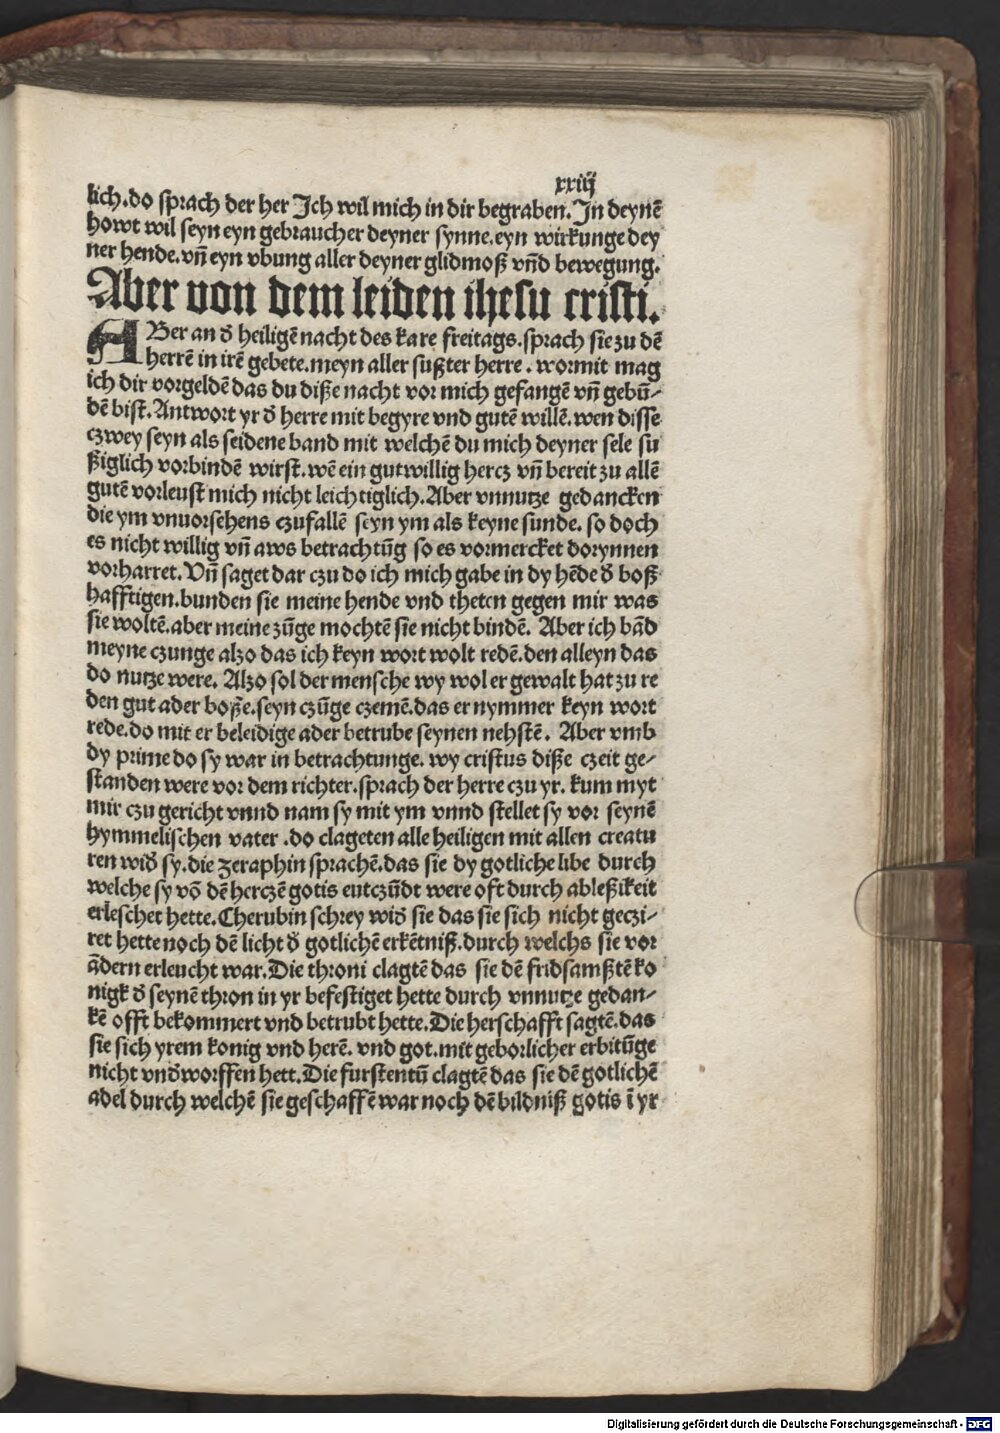 xxiij
lich.do sprach der her Jch wil mich in dir begraben.Jn deynē
howt wil seyn eyn gebraucher deyner synne.eyn wirkunge dey
ner hende.vn̄ eyn vbung aller deyner glidmoß vn̄d bewegung.
Aber von dem leiden ihesu cristi.
ABer an d̄ heiligē nacht des kare freitags.sprach sie zu dē
herrē in irē gebete.meyn aller sußter herre.wormit mag
ich dir vorgeldē das du diße nacht vor mich gefangē vn̄ gebū-
dē bist.Antwort yr d̄ herre mit begyre vnd gutē willē.wen disse
czwey seyn als seidene band mit welchē du mich deyner sele su
ßiglich vorbindē wirst.wē ein gutwillig hercz vn̄ bereit zu allē
gutē vorleust mich nicht leichtiglich.Aber vnnutze gedancken
die ym vnuorsehens czufallē seyn ym als keyne sunde.so doch
es nicht willig vn̄ aws betrachtūg so es vormercket dorynnen
vorharret.Vn̄ saget dar czu do ich mich gabe in dy hēde d̄ boß
hafftigen.bunden sie meine hende vnd theten gegen mir was
sie woltē.aber meine zūge mochtē sie nicht bindē. Aber ich bād
meyne czunge alzo das ich keyn wort wolt redē.den alleyn das
do nutze were. Alzo sol der mensche wy wol er gewalt hat zu re
den gut ader boße.seyn czūge czemē.das er nymmer keyn wort
rede.do mit er beleidige ader betrube seynen nehstē. Aber vmb
dy prime do sy war in betrachtunge.wy cristus diße czeit ge-
standen were vor dem richter.sprach der herre czu yr.kum myt
mir czu gericht vnnd nam sy mit ym vnnd stellet sy vor seynē
hymmelischen vater.do clageten alle heiligen mit allen creatu
ren wid̄ sy.die zeraphin sprachē.das sie dy gotliche libe durch
welche sy vō dē herczē gotis entczūdt were oft durch ableßikeit
erleschet hette.Cherubin schrey wid̄ sie das sie sich nicht geczi-
ret hette noch dē licht d̄ gotlichē erkētniß.durch welchs sie vor
ādern erleucht war.Die throni clagtē das sie dē fridsamßtē ko
nigk d̄ seynē thron in yr befestiget hette durch vnnutze gedan-
kē offt bekommert vnd betrubt hette.Die herschafft sagtē.das
sie sich yrem konig vnd herē.vnd got.mit geborlicher erbitūge
nicht vnd̄worffen hett.Die furstentū clagtē das sie dē gotlichē
adel durch welchē sie geschaffē war noch dē bildniß gotis ī yr
Digitalisierung gefördert durch die Deutsche Forschungsgemeinschaft - DFG